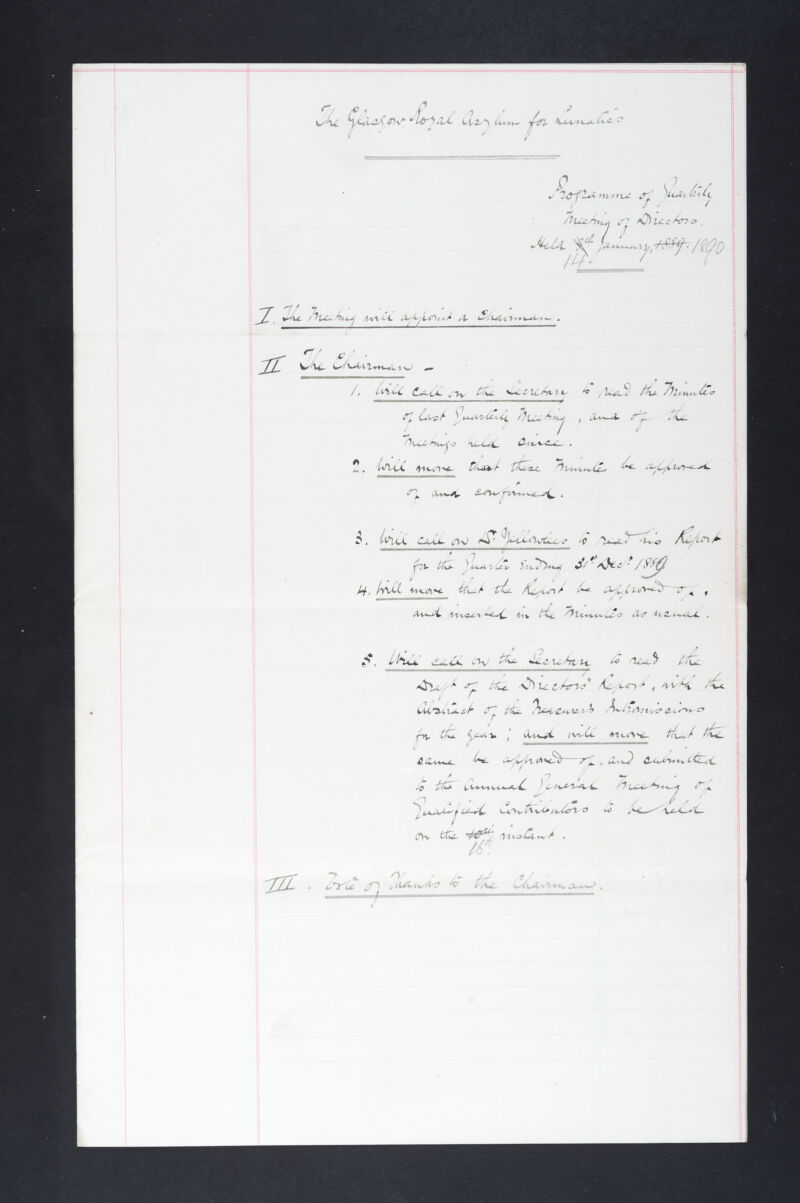 The Glasgow Royal Asylum for Lunatics
Programme of Quarterly
Meeting of Directors.
Held 8th January, 1889. 1890
14
I. The Meeting will appoint a Chairman.
II The Chairman –
1. Will call on the Secretary to read the Minutes
of last Quarterly Meeting, and of the
Meetings held since.
2. Will move that these Minutes be approved
of and confirmed.
3. Will call on Dr Yellowlees to read his Report
for the Quarter ending 31st Decr 1889
4. Will move that the Report be approved of,
and inserted in the Minutes as usual.
5. Will call on the Secretary to read the
Draft of the Directors' Report, with the
Abstract of the Treasurer's Intromissions
for the year; and will move that the
same be approved of, and submitted
to the Annual General Meeting of
Qualified Contributors to be held
on the instant.
16th
III. Vote of Thanks to the Chairman.